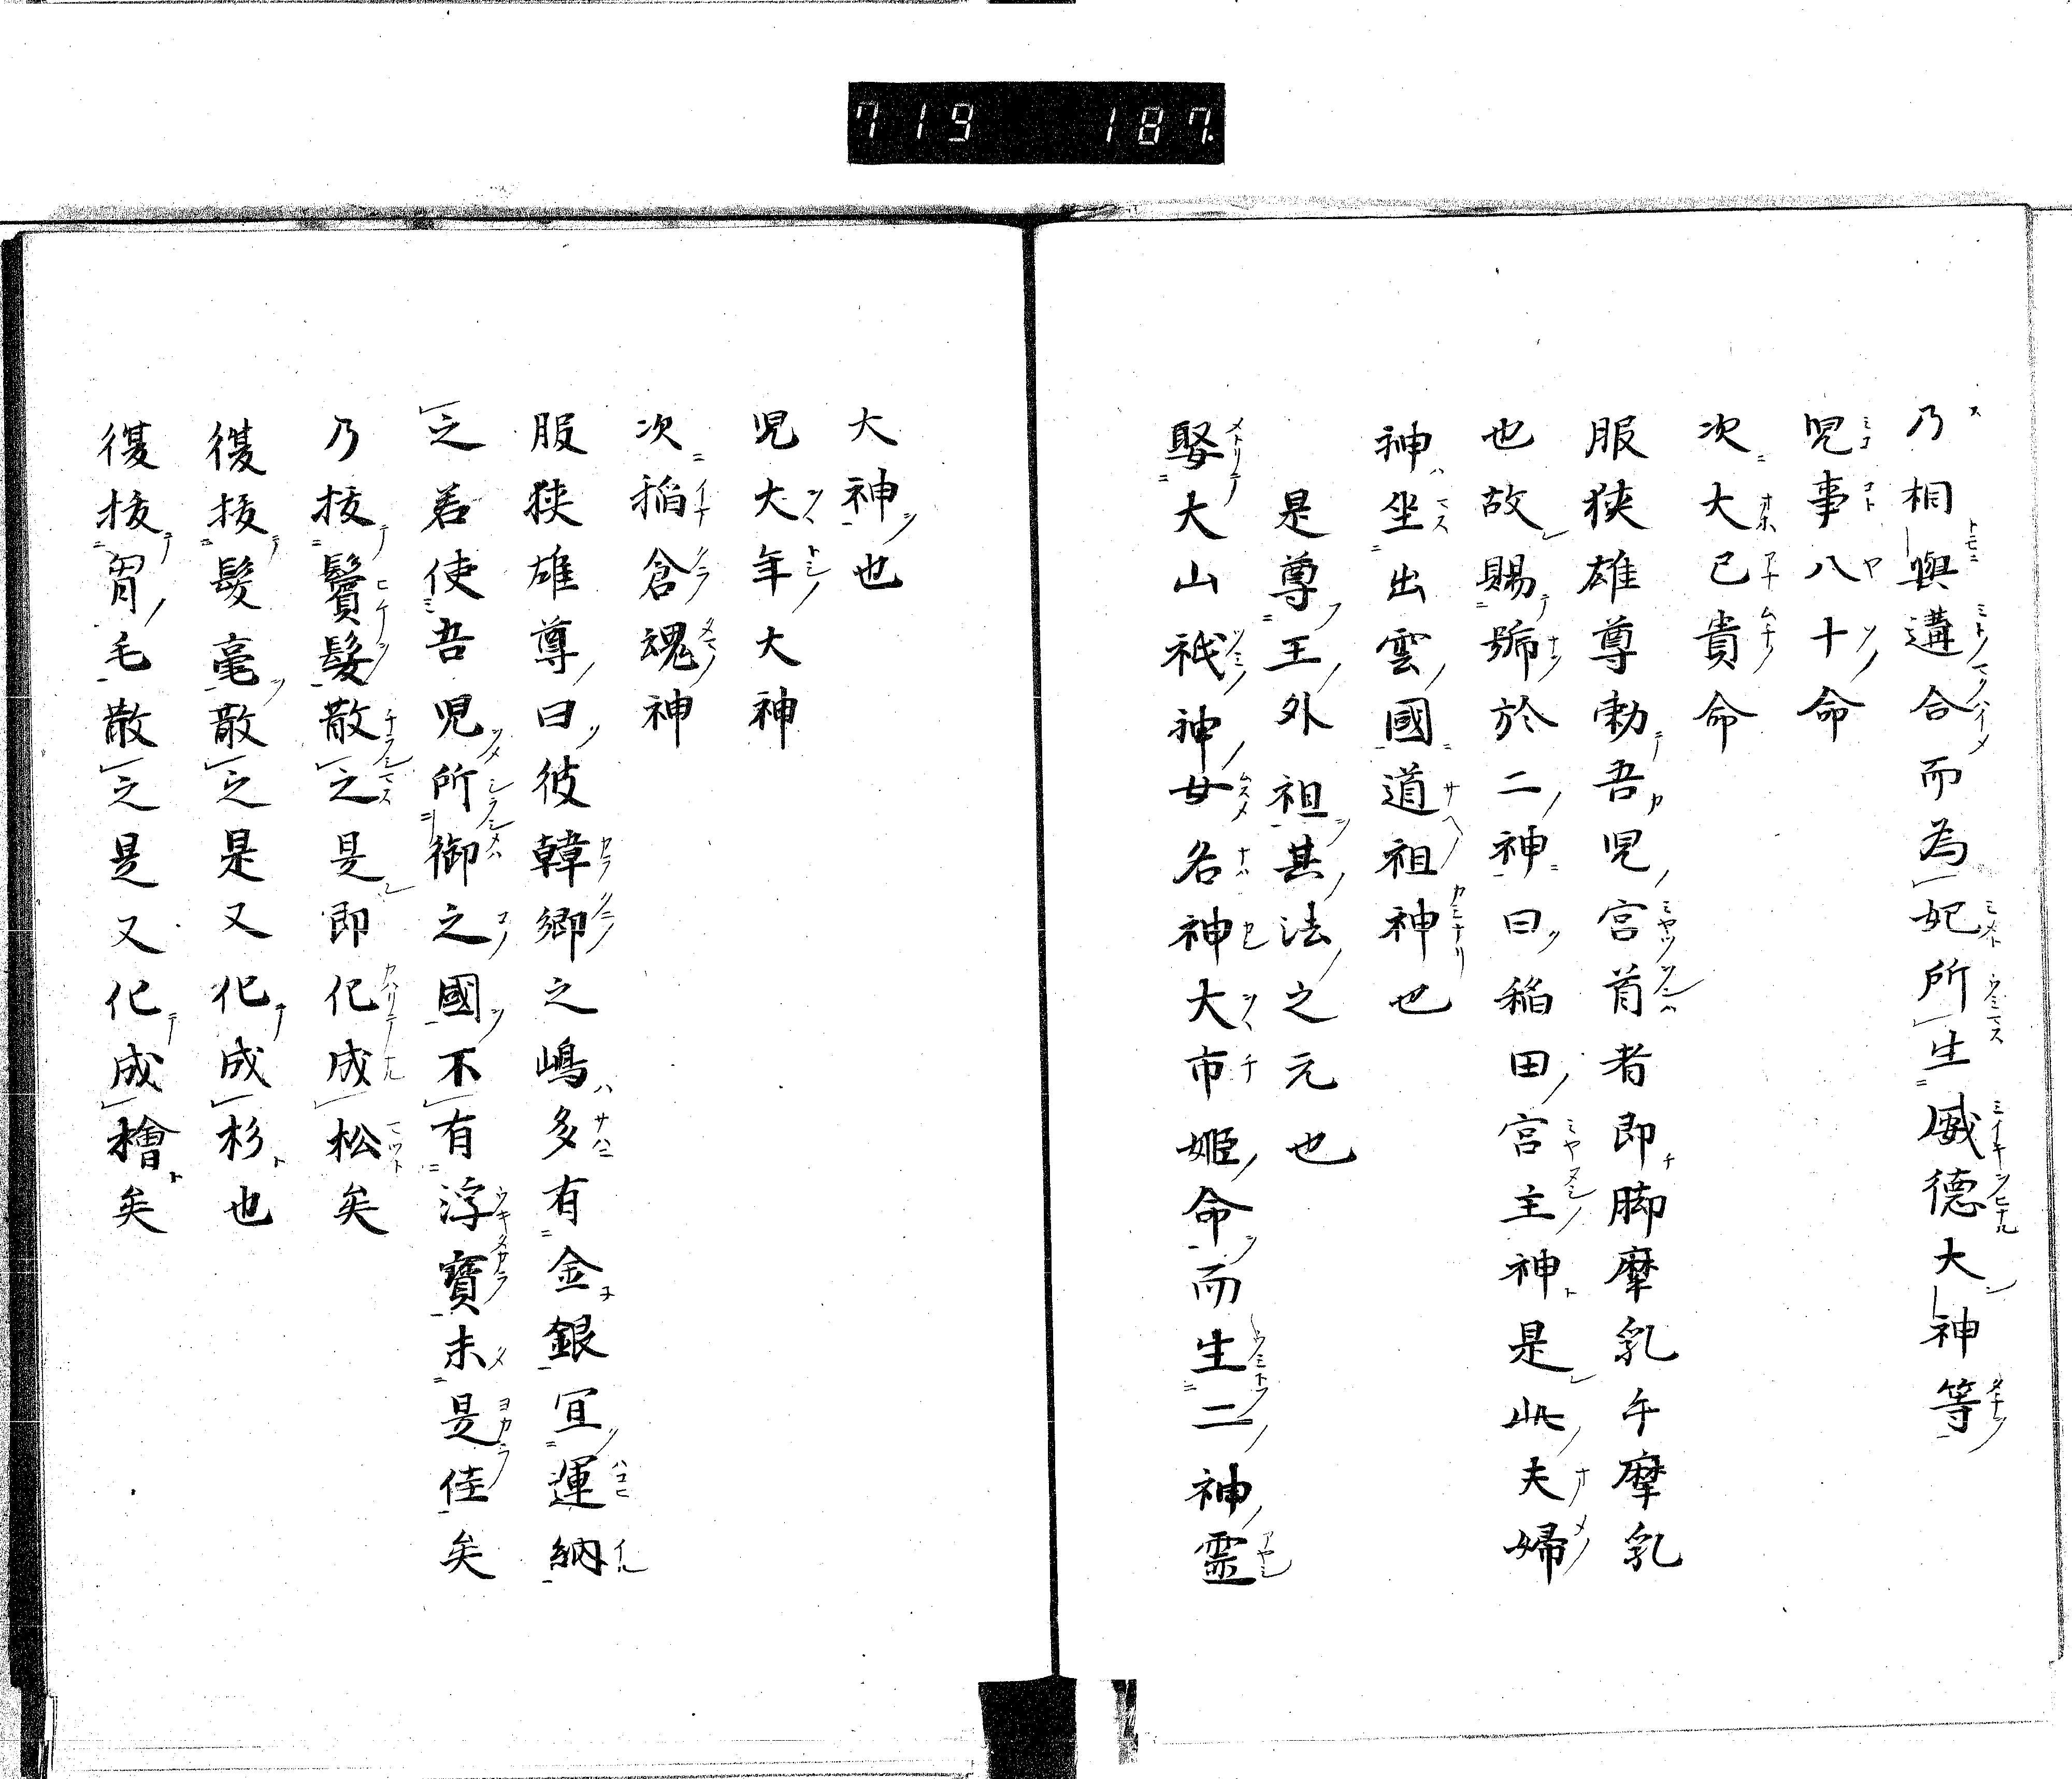 719 187.
乃相與遘合而為妃所生威德大神等
児事八十命
次大己貴命
服狭雄尊勅吾児宮首者即脚摩乳手摩乳
也故賜號於二神曰稲田宮主神是此夫婦
神坐出雲國道祖神也
是尊王外祖其法之元也
娶大山祇神女名神大市姫命而生二神霊
大神也
児大年大神
次稲倉魂神
服狭雄尊曰彼韓郷之嶋多有金銀宜運納
之若使吾児所御之國不有浮寶未是佳矣
乃抜鬚髪散之是即化成松矣
復抜髮毫散之是又化成杉也
復抜胷毛散之是又化成檜矣